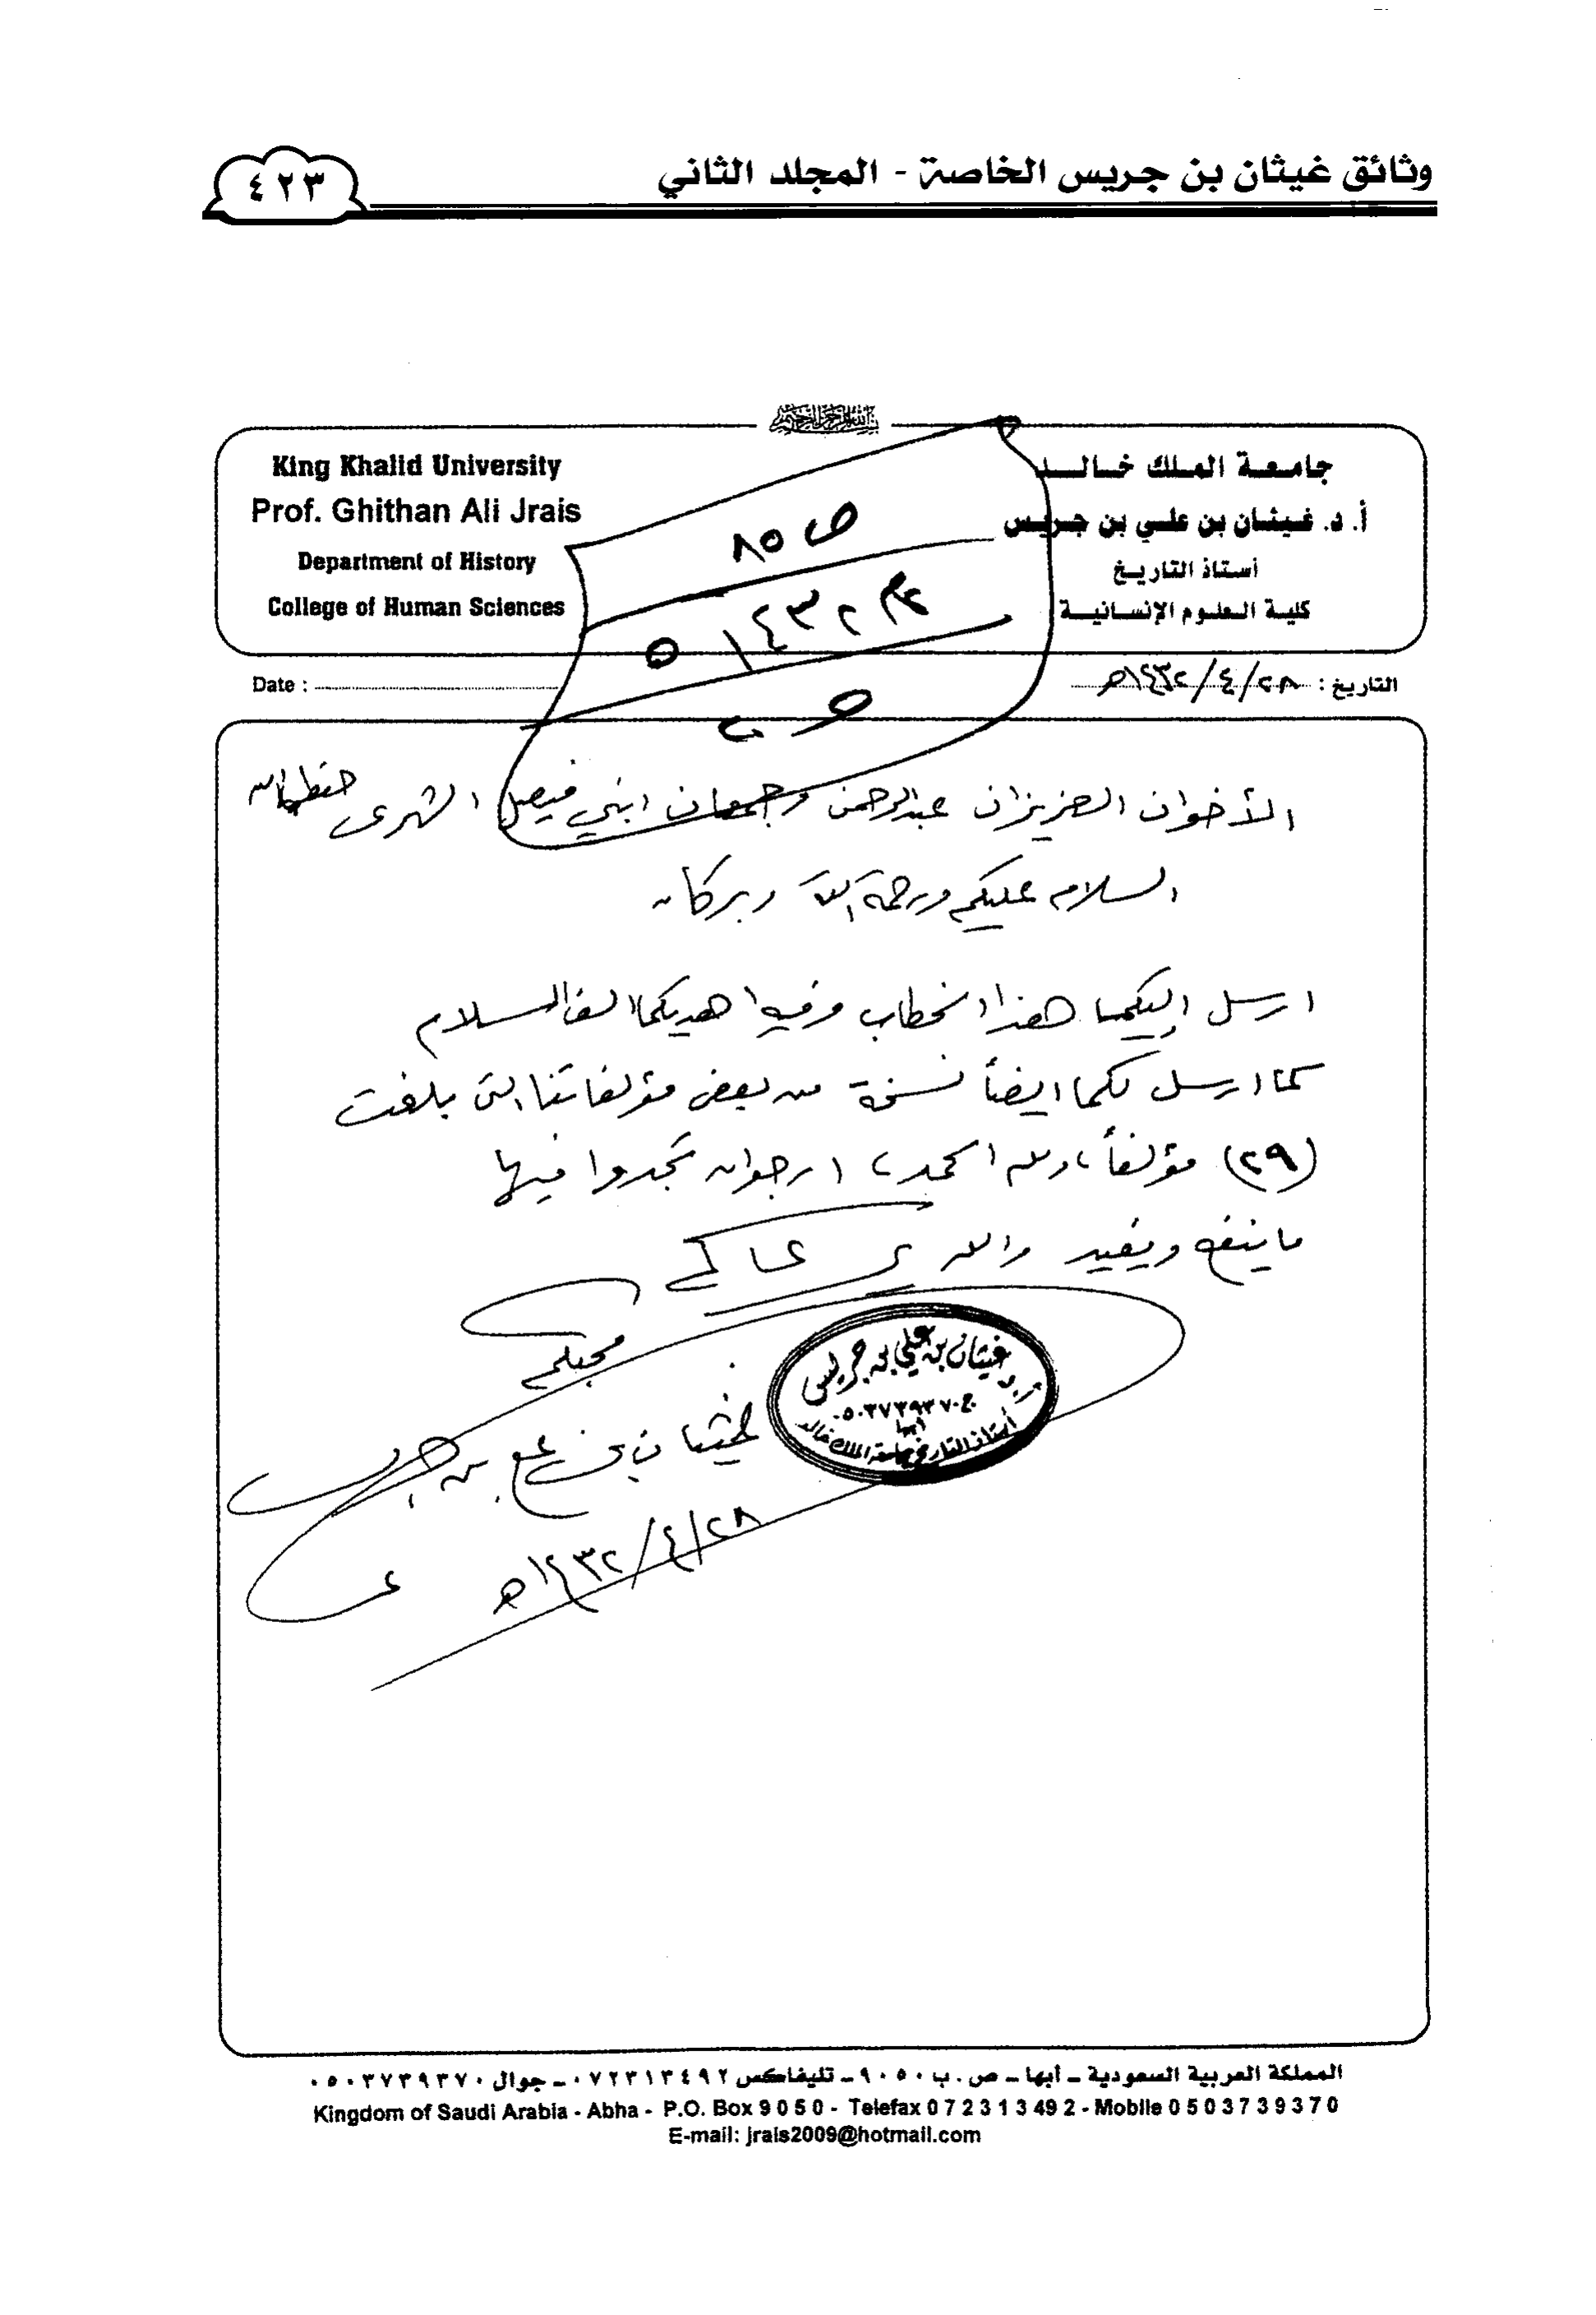 وثائق غيثان بن جريس الخاصة - المجلد الثاني
٤٢٣
جامعة الملك خالد
أ. د. غيثان بن علي بن جريس
أستاذ التاريخ
كلية العلوم الإنسانية
King Khalid University
Prof. Ghithan Ali Jrais
Department of History
College of Human Sciences
ص ٨٥
١٤٣٢
التاريخ : ٢٨/٤/١٤٣٢هـ
Date :
الأخوان العزيزان عبدالرحمن وجمعان ابني فيصل الشهري حفظهما الله
السلام عليكم ورحمة الله وبركاته
ارسل إليكما هذا الخطاب وفيه اهديكما الف السلام
كما ارسل لكما ايضاً نسخة من بعض مؤلفاتنا التي بلغت
(٢٩) مؤلفاً، ولله الحمد، ارجو ان تجدوا فيها
ما ينفع ويفيد والله يرعاكم
محبكم
غيثان بن علي بن جريس
٢٨/٤/١٤٣٢هـ
أ.د غيثان بن علي بن جريس
ج ٠٥٠٣٧٣٩٣٧٠
أبها
أستاذ التاريخ بجامعة الملك خالد
المملكة العربية السعودية - أبها - ص . ب ٩٠٥٠ - تليفاكس ٠٧٢٣١٣٤٩٢ - جوال ٠٥٠٣٧٣٩٣٧٠
Kingdom of Saudi Arabia - Abha - P.O. Box 9 0 5 0 - Telefax 0 7 2 3 1 3 49 2 - Mobile 0 5 0 3 7 3 9 3 7 0
E-mail: jrais2009@hotmail.com